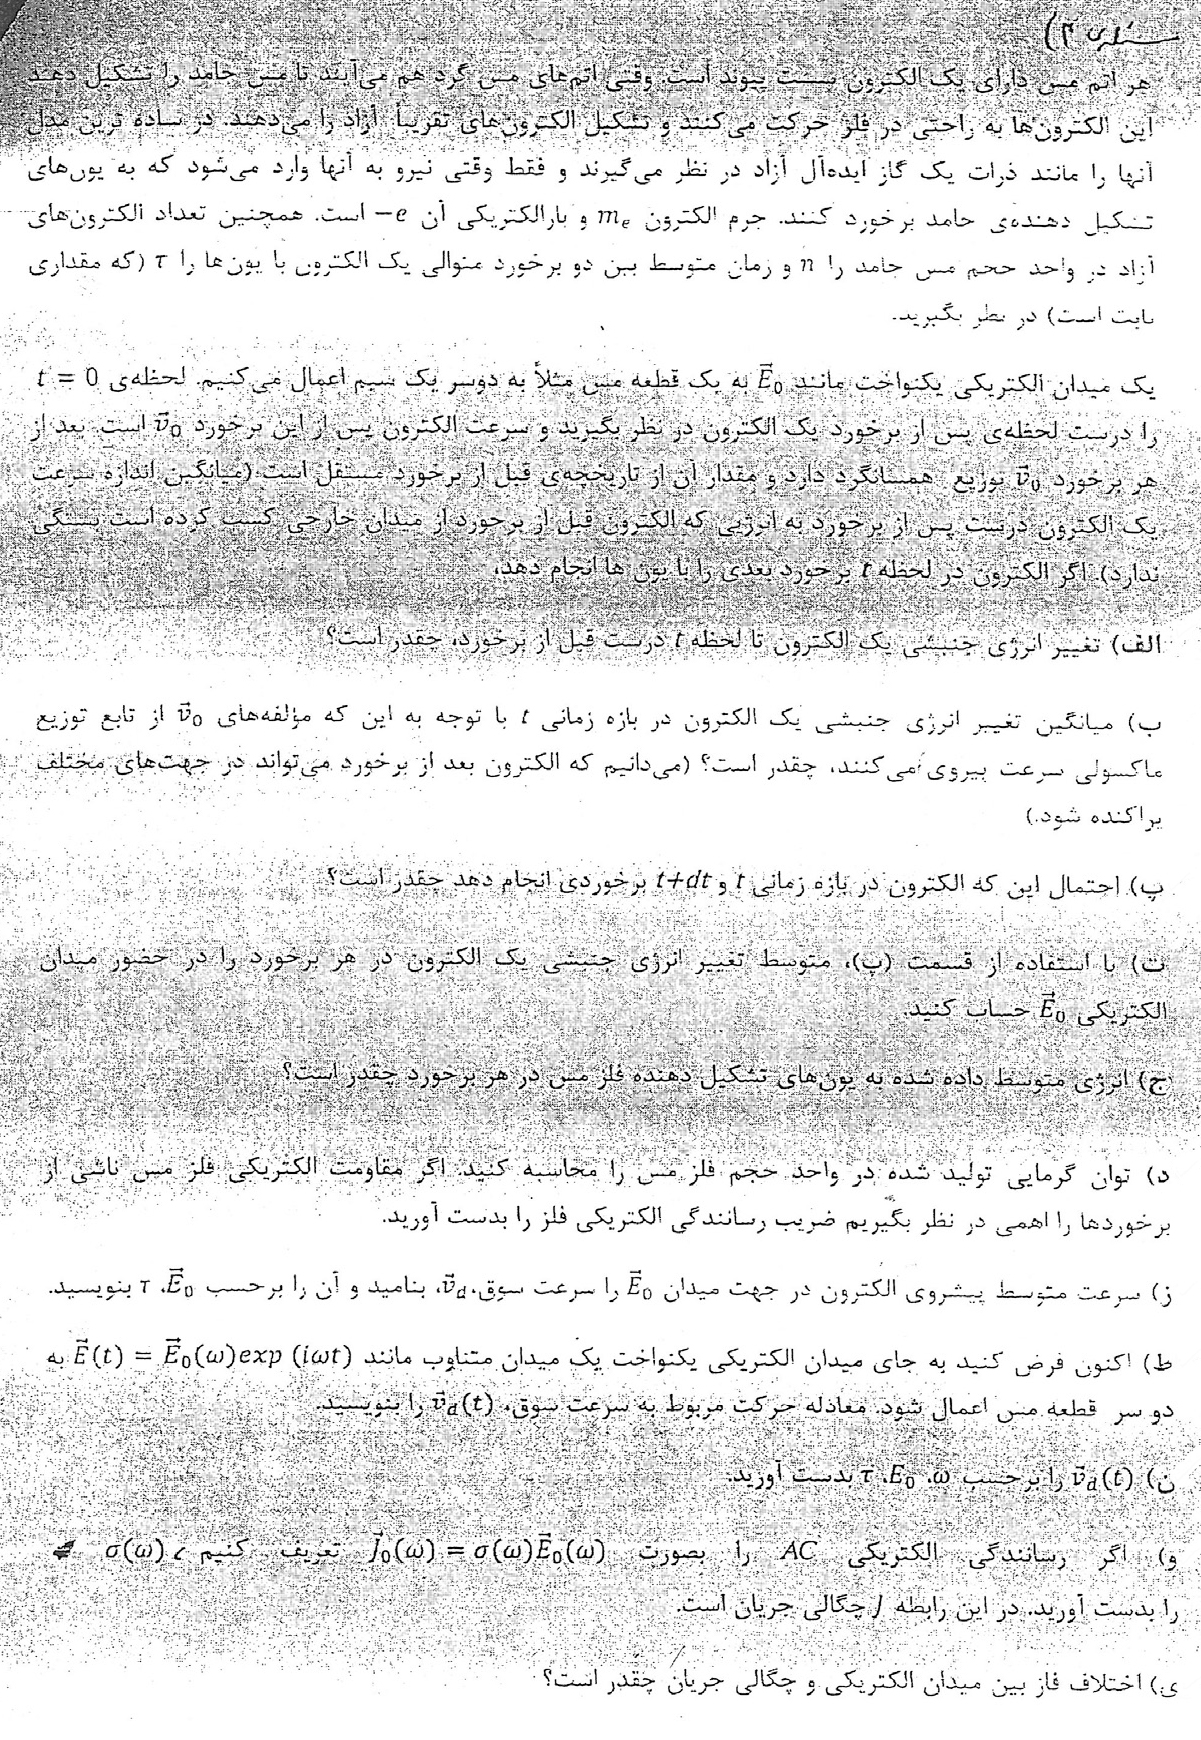 مسئله‌ی ۳)
هر اتم مس دارای یک الکترون سست پیوند است. وقتی اتم‌های مس گرد هم می‌آیند تا مس جامد را تشکیل دهند
این الکترون‌ها به راحتی در فلز حرکت می‌کنند و تشکیل الکترون‌های تقریباً آزاد را می‌دهند. در ساده ترین مدل
آنها را مانند ذرات یک گاز ایده‌آل آزاد در نظر می‌گیرند و فقط وقتی نیرو به آنها وارد می‌شود که به یون‌های
تشکیل دهنده‌ی جامد برخورد کنند. جرم الکترون mₑ و بارالکتریکی آن e− است. همچنین تعداد الکترون‌های
آزاد در واحد حجم مس جامد را n و زمان متوسط بین دو برخورد متوالی یک الکترون با یون ها را τ (که مقداری
ثابت است) در نظر بگیرید.
یک میدان الکتریکی یکنواخت مانند E⃗₀ به یک قطعه مس مثلاً به دوسر یک سیم اعمال می‌کنیم. لحظه‌ی t = 0
را درست لحظه‌ی پس از برخورد یک الکترون در نظر بگیرید و سرعت الکترون پس از این برخورد v⃗₀ است. بعد از
هر برخورد v⃗₀ توزیع همسانگرد دارد و مقدار آن از تاریخچه‌ی قبل از برخورد مستقل است (میانگین اندازه سرعت
یک الکترون درست پس از برخورد به انرژیی که الکترون قبل از برخورد از میدان خارجی کسب کرده است بستگی
ندارد). اگر الکترون در لحظه t برخورد بعدی را با یون ها انجام دهد،
الف) تغییر انرژی جنبشی یک الکترون تا لحظه t درست قبل از برخورد، چقدر است؟
ب) میانگین تغییر انرژی جنبشی یک الکترون در بازه زمانی t با توجه به این که مؤلفه‌های v⃗₀ از تابع توزیع
ماکسولی سرعت پیروی می‌کنند، چقدر است؟ (می‌دانیم که الکترون بعد از برخورد می‌تواند در جهت‌های مختلف
پراکنده شود.)
پ) احتمال این که الکترون در بازه زمانی t و t+dt برخوردی انجام دهد چقدر است؟
ت) با استفاده از قسمت (پ)، متوسط تغییر انرژی جنبشی یک الکترون در هر برخورد را در حضور میدان
الکتریکی E⃗₀ حساب کنید.
ج) انرژی متوسط داده شده به یون‌های تشکیل دهنده فلز مس در هر برخورد چقدر است؟
د) توان گرمایی تولید شده در واحد حجم فلز مس را محاسبه کنید. اگر مقاومت الکتریکی فلز مس ناشی از
برخوردها را اهمی در نظر بگیریم ضریب رسانندگی الکتریکی فلز را بدست آورید.
ز) سرعت متوسط پیشروی الکترون در جهت میدان E⃗₀ را سرعت سوق، v⃗_d، بنامید و آن را برحسب E⃗₀، τ بنویسید.
ط) اکنون فرض کنید به جای میدان الکتریکی یکنواخت یک میدان متناوب مانند E⃗(t) = E⃗₀(ω)exp (iωt) به
دو سر قطعه مس اعمال شود. معادله حرکت مربوط به سرعت سوق، v⃗_d(t) را بنویسید.
ن) v⃗_d(t) را برحسب ω، E₀، τ بدست آورید.
و) اگر رسانندگی الکتریکی AC را بصورت J⃗₀(ω) = σ(ω)E⃗₀(ω) تعریف کنیم، σ(ω)
را بدست آورید. در این رابطه J چگالی جریان است.
ی) اختلاف فاز بین میدان الکتریکی و چگالی جریان چقدر است؟